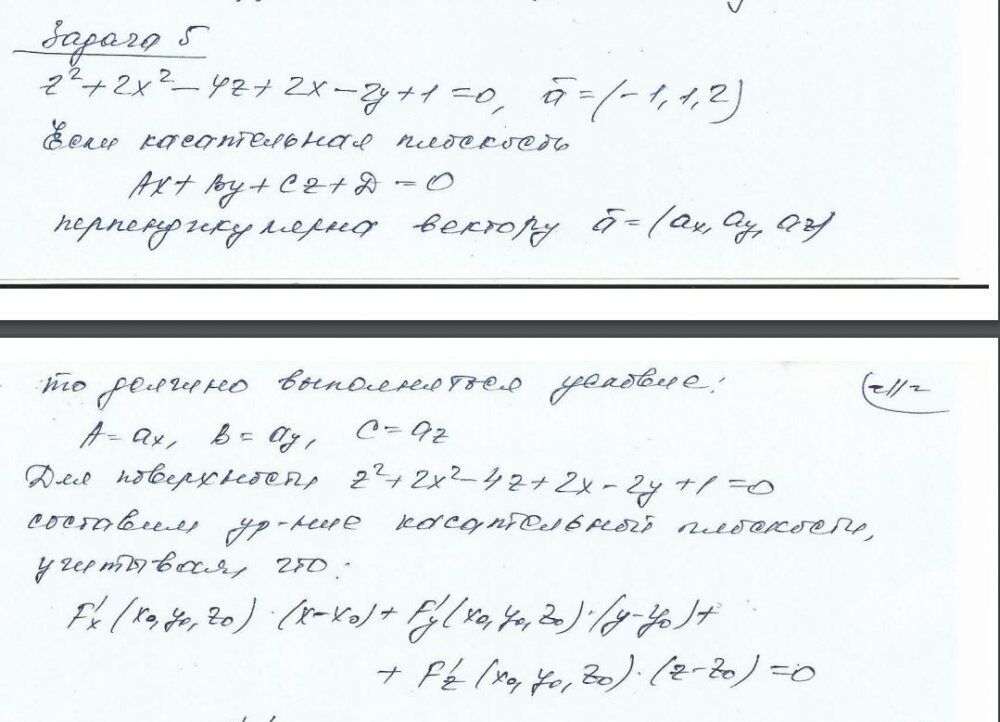 Задача 5
z² + 2x² - 4z + 2x - 2y + 1 = 0, ā = (-1, 1, 2)
Если касательная плоскость
Ax + By + Cz + D = 0
перпендикулярна вектору ā = (ax, ay, az)
то должно выполняться условие:
A = ax, B = ay, C = az
Для поверхности z² + 2x² - 4z + 2x - 2y + 1 = 0
составим ур-ние касательной плоскости,
учитывая, что:
F'x (x0, y0, z0) · (x - x0) + F'y (x0, y0, z0) · (y - y0) +
+ F'z (x0, y0, z0) · (z - z0) = 0